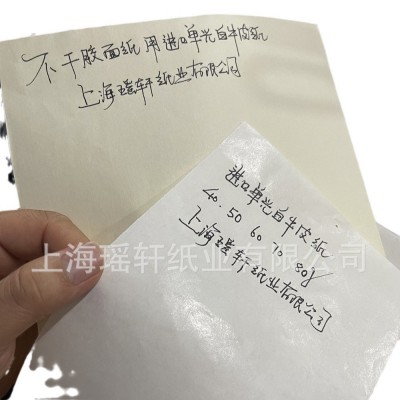 不干胶面纸 用进口单光白牛皮纸
上海瑶轩纸业有限公司
进口单光白牛皮纸
40. 50 60 70 80g
上海瑶轩纸业有限公司
上海瑶轩纸业有限公司